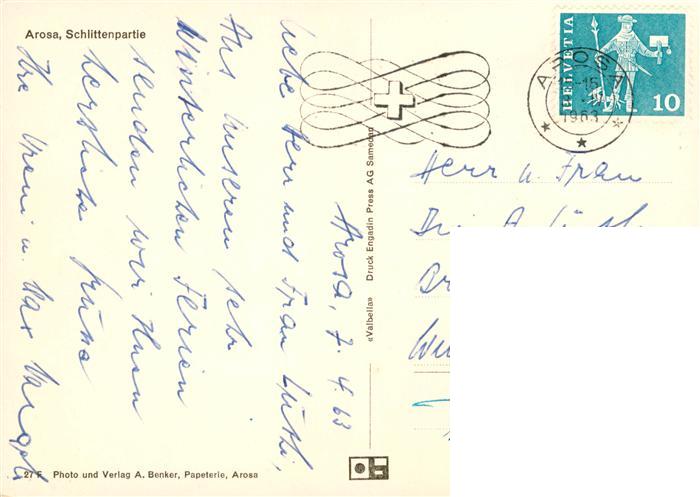 Arosa, Schlittenpartie
Arosa, 7. 4. 63
Liebe Herr und Frau Lüthi,
Aus unseren sehr
Winterlichen Ferien
senden wir Ihnen
herzliche Grüsse
Ihre Vreni u. Max
«Valbella» Druck Engadin Press AG Samedan
HELVETIA
10
AROSA
-15
1963
Herr u. Frau
27 F Photo und Verlag A. Benker, Papeterie, Arosa